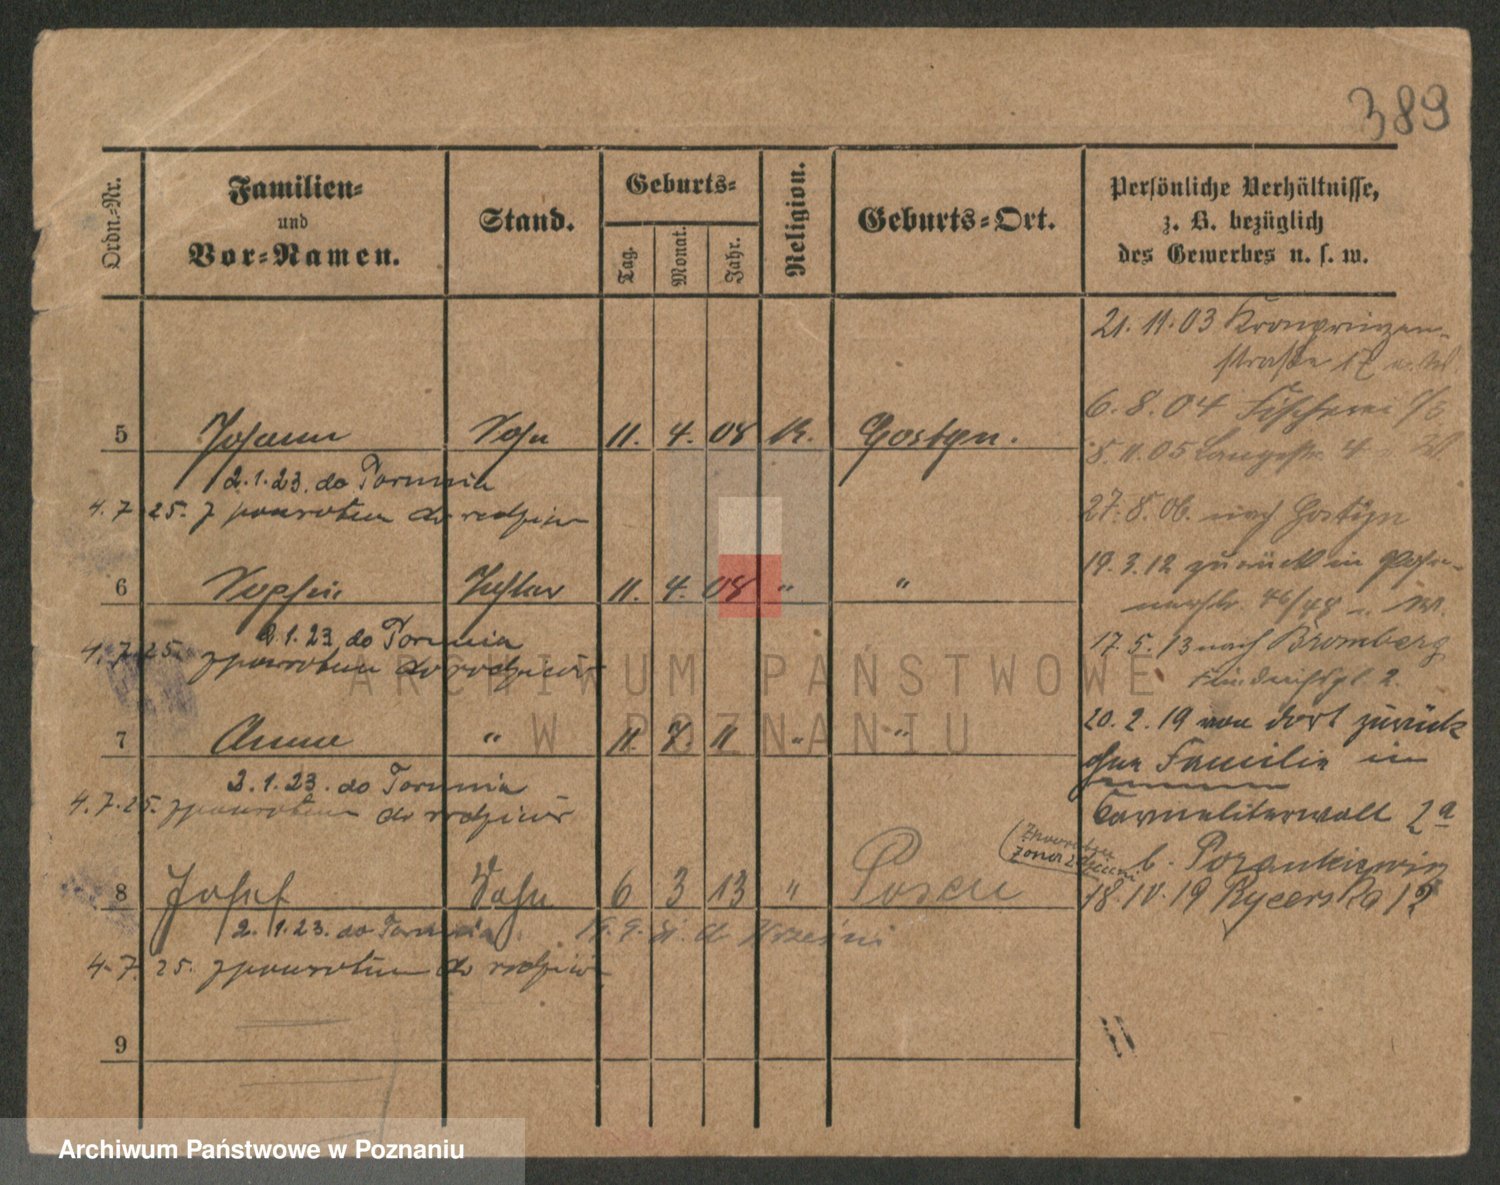 389
Ordn.-Nr.
Familien-
und
Vor-Namen.
Stand.
Geburts-
Tag.
Monat.
Jahr.
Religion.
Geburts-Ort.
Persönliche Verhältnisse,
z. B. bezüglich
des Gewerbes u. s. w.
21. 11. 03 Kronprinzen-
straße 17
6. 8. 04 Fischerei
5 Johann Sohn 11. 4. 08 K. Gostyn.
8. 11. 05 Langestr. 4
2.1.23. do Torunia
4.7.25. z powrotem do rodziców
27. 8. 06. nach Gostyn
19. 3. 12 zurück in
6 Sophie Tochter 11. 4. 08 " "
46/48
2.1.23 do Torunia
4.7.25. z powrotem do rodziców
17. 5. 13 nach Bromberg
2.
ARCHIWUM PAŃSTWOWE
W POZNANIU
20. 2. 19 von dort zurück
7 Anna " 11. 7. 11 " "
ohne Familie in
2.1.23. do Torunia
4.7.25. z powrotem do rodziców
Carmeliterwall 2a
b.
8 Josef Sohn 6 3 13 " Posen
18. IV. 19 Rycerska 12
2.1.23. do Torunia
do Wrześni
4.7.25. z powrotem do rodziców
9
Archiwum Państwowe w Poznaniu